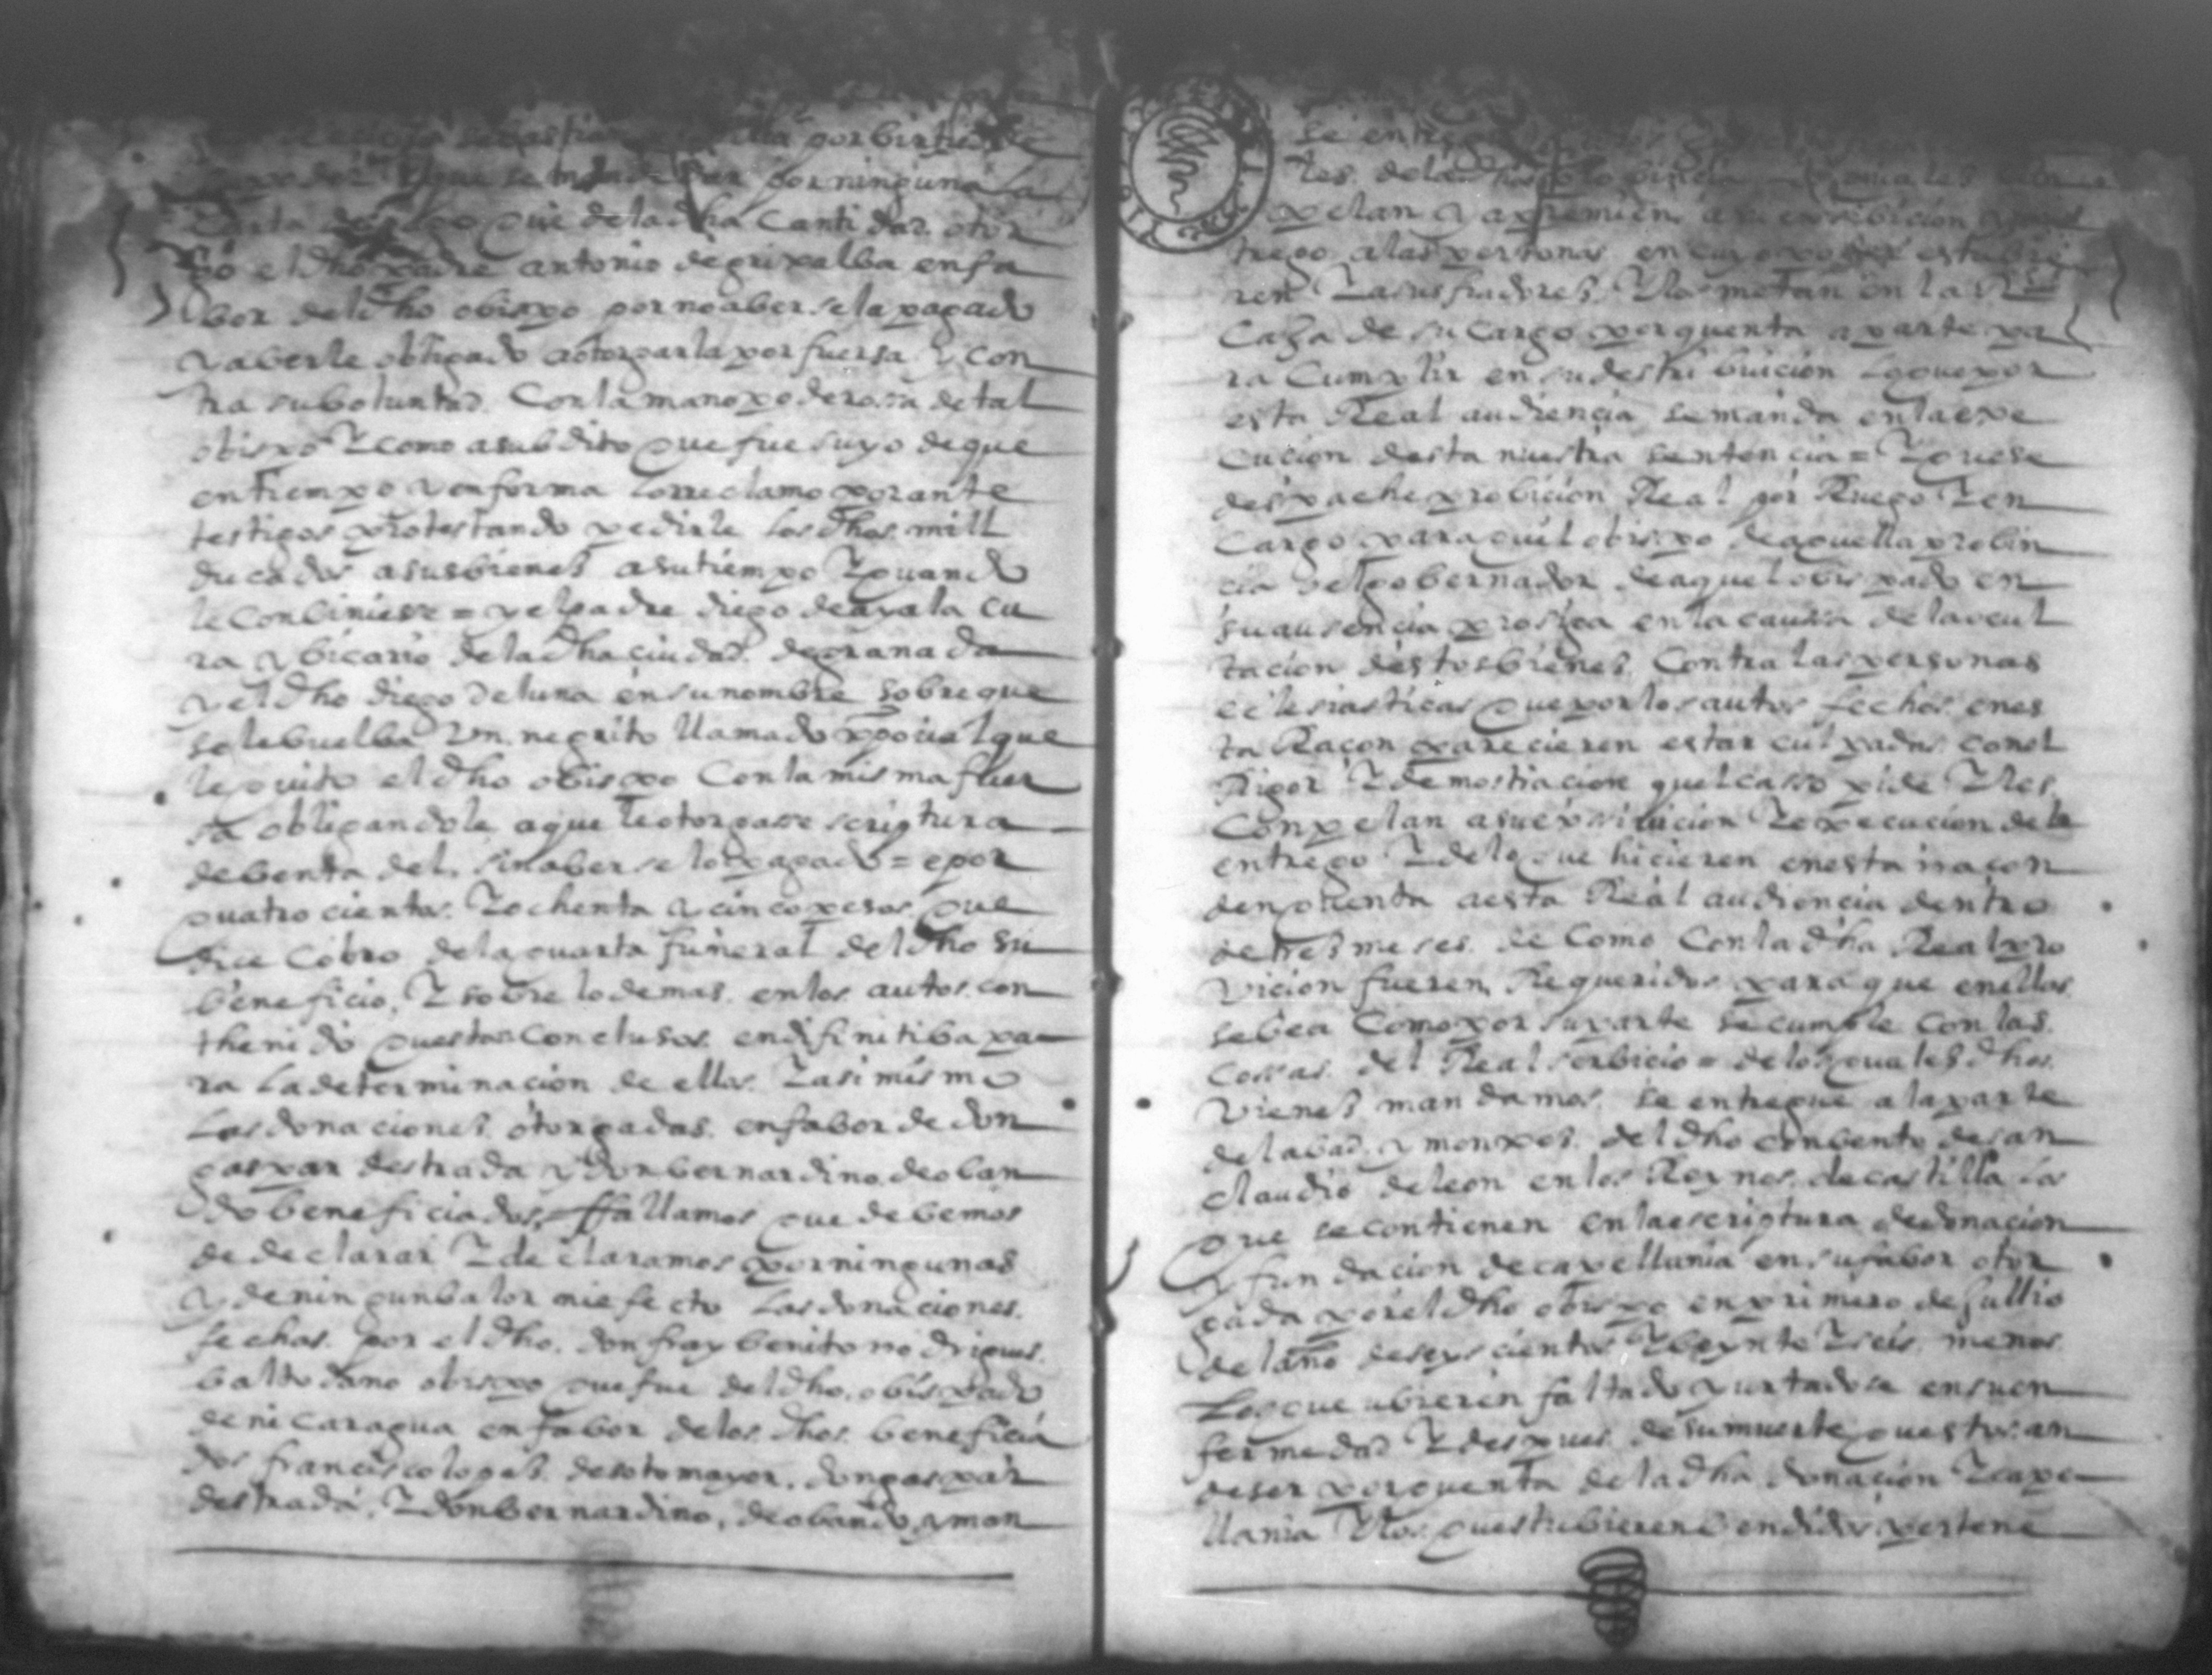 por birtud de
por ninguna la
que de la dha cantidad otor
go el dho padre antonio de grixalba en fa
bor del dho obispo por no aber sela pagado
y aberle obligado a otorgarla por fuersa y con
tra su boluntad con la mano poderossa de tal
obispo y como a subdito que fue suyo de que
en tiempo y en forma lo rreclamo por ante
testigos protestando pedirle los dhos mill
ducados a sus bienes a su tiempo y quando
le conbiniese = y el padre diego de ayala cu
ra y bicario de la dha ciudad de granada
y el dho diego de luna en su nombre sobre que
se le buelba un negrito llamado xpoual que
le quito el dho obispo con la misma fuer
sa obligandole a que le otorgasse scriptura
de benta del sin aber selo pagado = e por
quatrocientos y ochenta y cinco pesos que
dice cobro de la quarta funeral del dho su
beneficio, y sobre lo demas en los autos con
thenido questan conclusos en difinitiba pa
ra la determinacion de ellos y asi mismo
las donaciones otorgadas en fabor de don
gaspar destrada y don bernardino de oban
do beneficiados, ffallamos que debemos
de declarar y declaramos por ningunas
y de ningun balor ni efecto las donaciones
fechas por el dho don fray benito rrodrigues
baltodano obispo que fue del dho obispado
de nicaragua en fabor de los dhos beneficia
dos francisco lopes de sotomayor, don gaspar
destrada, y don bernardino, de obando y mon
se entre
les de la
pelan y apremien a su exsibicion y en
trego a las personas en cuyo poder estubie
ren y a sus fiadores y los metan en la Rl
Caxa de su cargo por quenta aparte pa
ra cumplir en su destribuicion lo que por
esta Real audiencia se manda en la exe
cucion desta nuestra sentencia = y que se
despache probicion Real por Ruego y en
cargo para quel obispo de aquella probin
cia o el gobernador de aquel obispado en
su ausencia prosiga en la caussa de la ocul
tacion destos bienes contra las personas
eclesiasticas que por los autos fechos en es
ta Raçon parecieren estar culpadas con el
Rigor y demostracion quel casso pide y les
conpelan a su exsiuicion y execucion de la
entrego y de lo que hicieren en esta rraçon
den quenta a esta Real audiencia dentro
de tres meses de como con la dha Real pro
vicion fueren Requeridos para que en ellos
se bea como por su parte se cumple con las
cossas del Real serbicio = de los quales dhos
vienes mandamos se entregue a la parte
del abad y monxes del dho conbento de san
claudio de leon en los Reynos de castilla los
que se contienen en la escriptura de donacion
y fundacion de capellania en su fabor otor
gada por el dho obispo en primero de Jullio
del año de seyscientos y beynte y seis menos
los que ubieren faltado y urtadose en su en
fermedad y despues de su muerte questos an
de ser por quenta de la dha donacion y cape
llania y los questubieren bendidos pertene